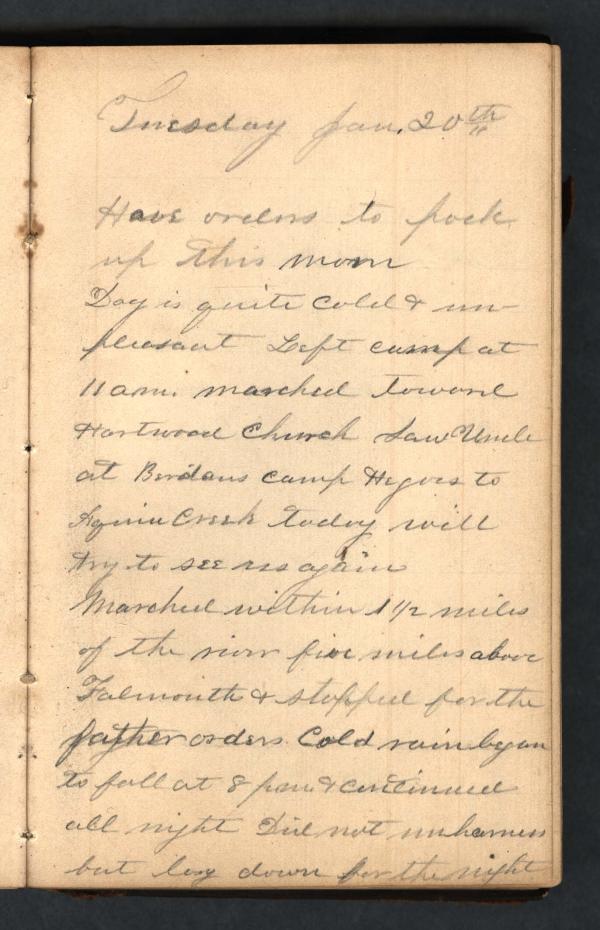 Tuesday Jan. 20th
Have orders to pack
up this morn
Day is quite cold & un-
pleasant Left camp at
11 a.m. marched toward
Hartwood Church Saw Uncle
at Berdans camp He goes to
Aquia Creek today will
try to see us again
Marched within 1 1/2 miles
of the river five miles above
Falmouth & stopped for the
father orders Cold rain began
to fall at 8 p.m & continued
all night Did not unharness
but lay down for the night